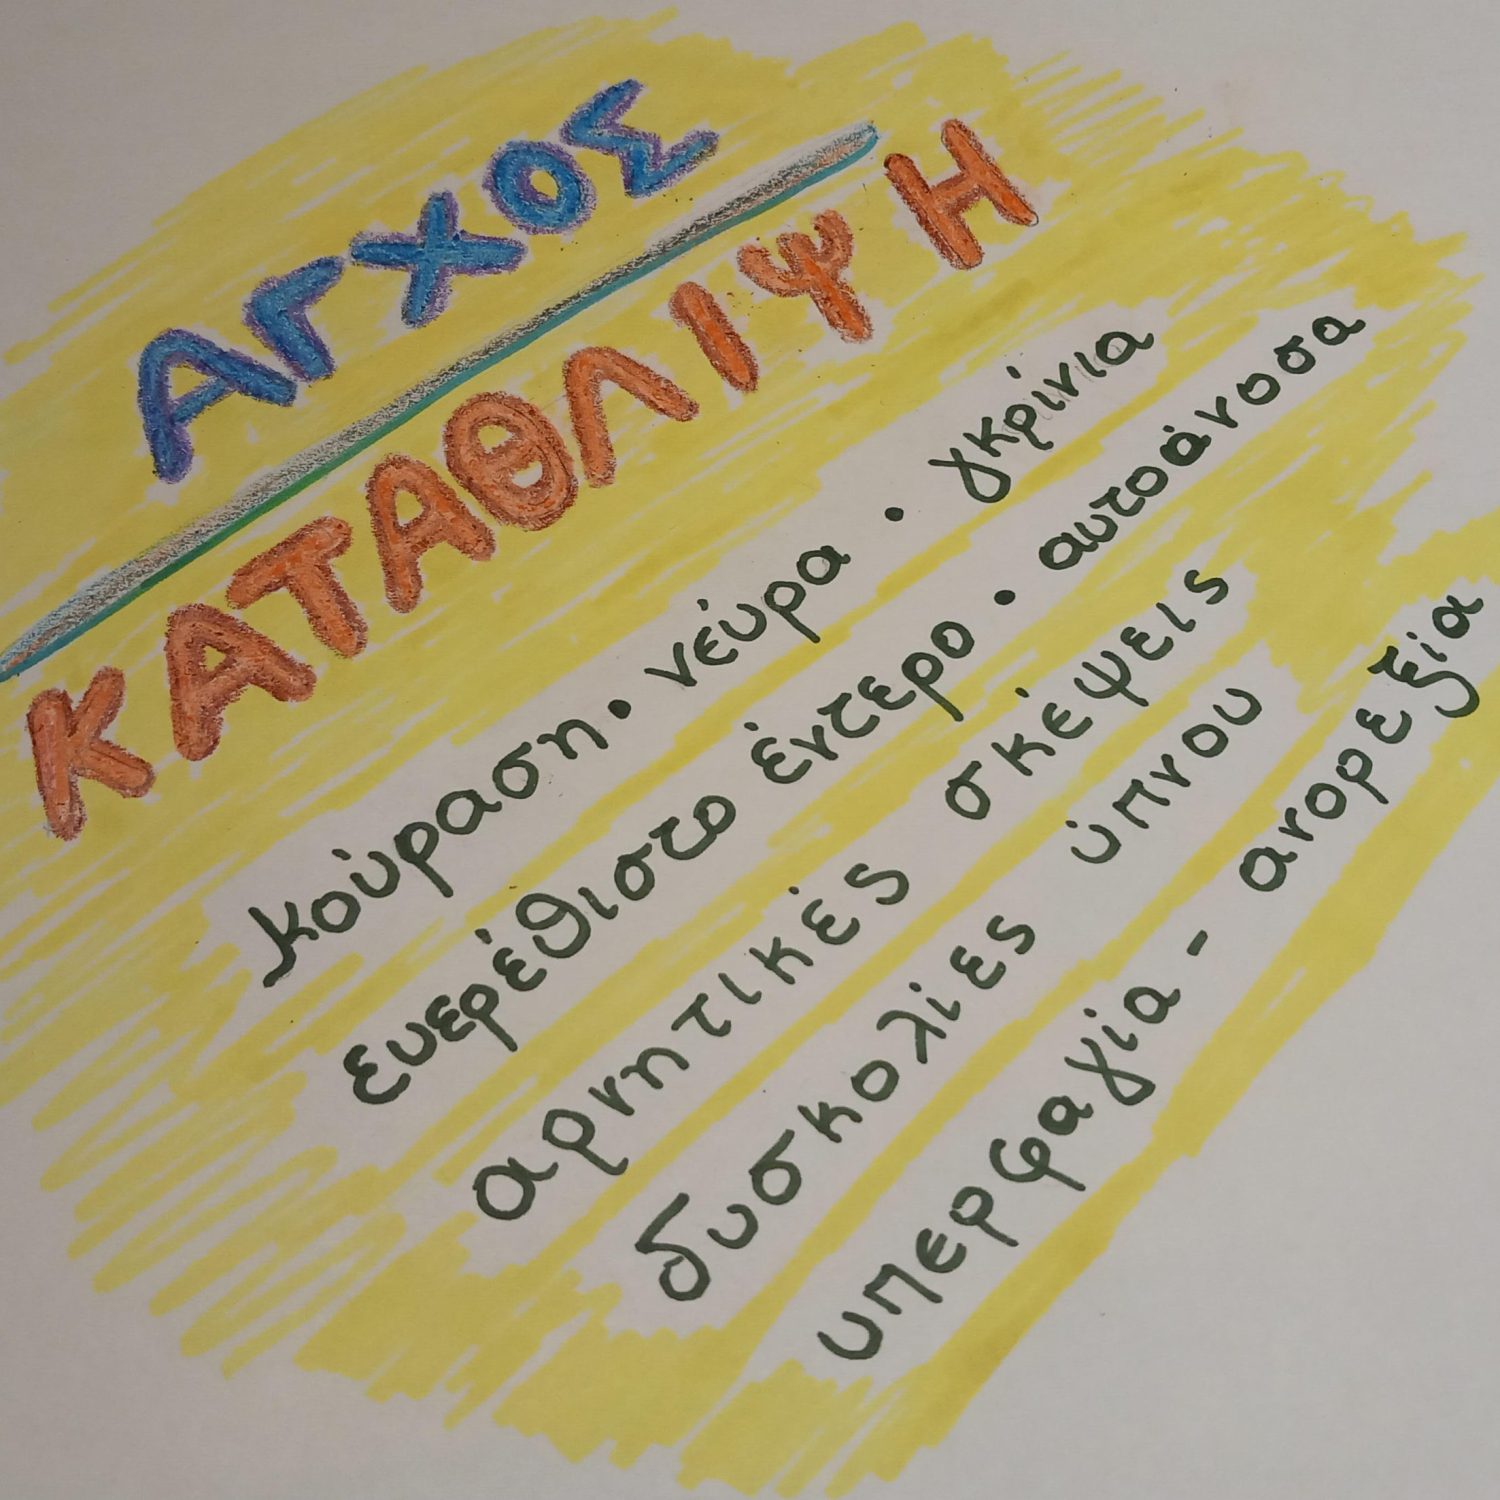 ΑΓΧΟΣ
ΚΑΤΑΘΛΙΨΗ
κούραση · νεύρα · γκρίνια
ευερέθιστο έντερο · αυτοάνοσα
αρνητικές σκέψεις
δυσκολίες ύπνου
υπερφαγία - ανορεξία